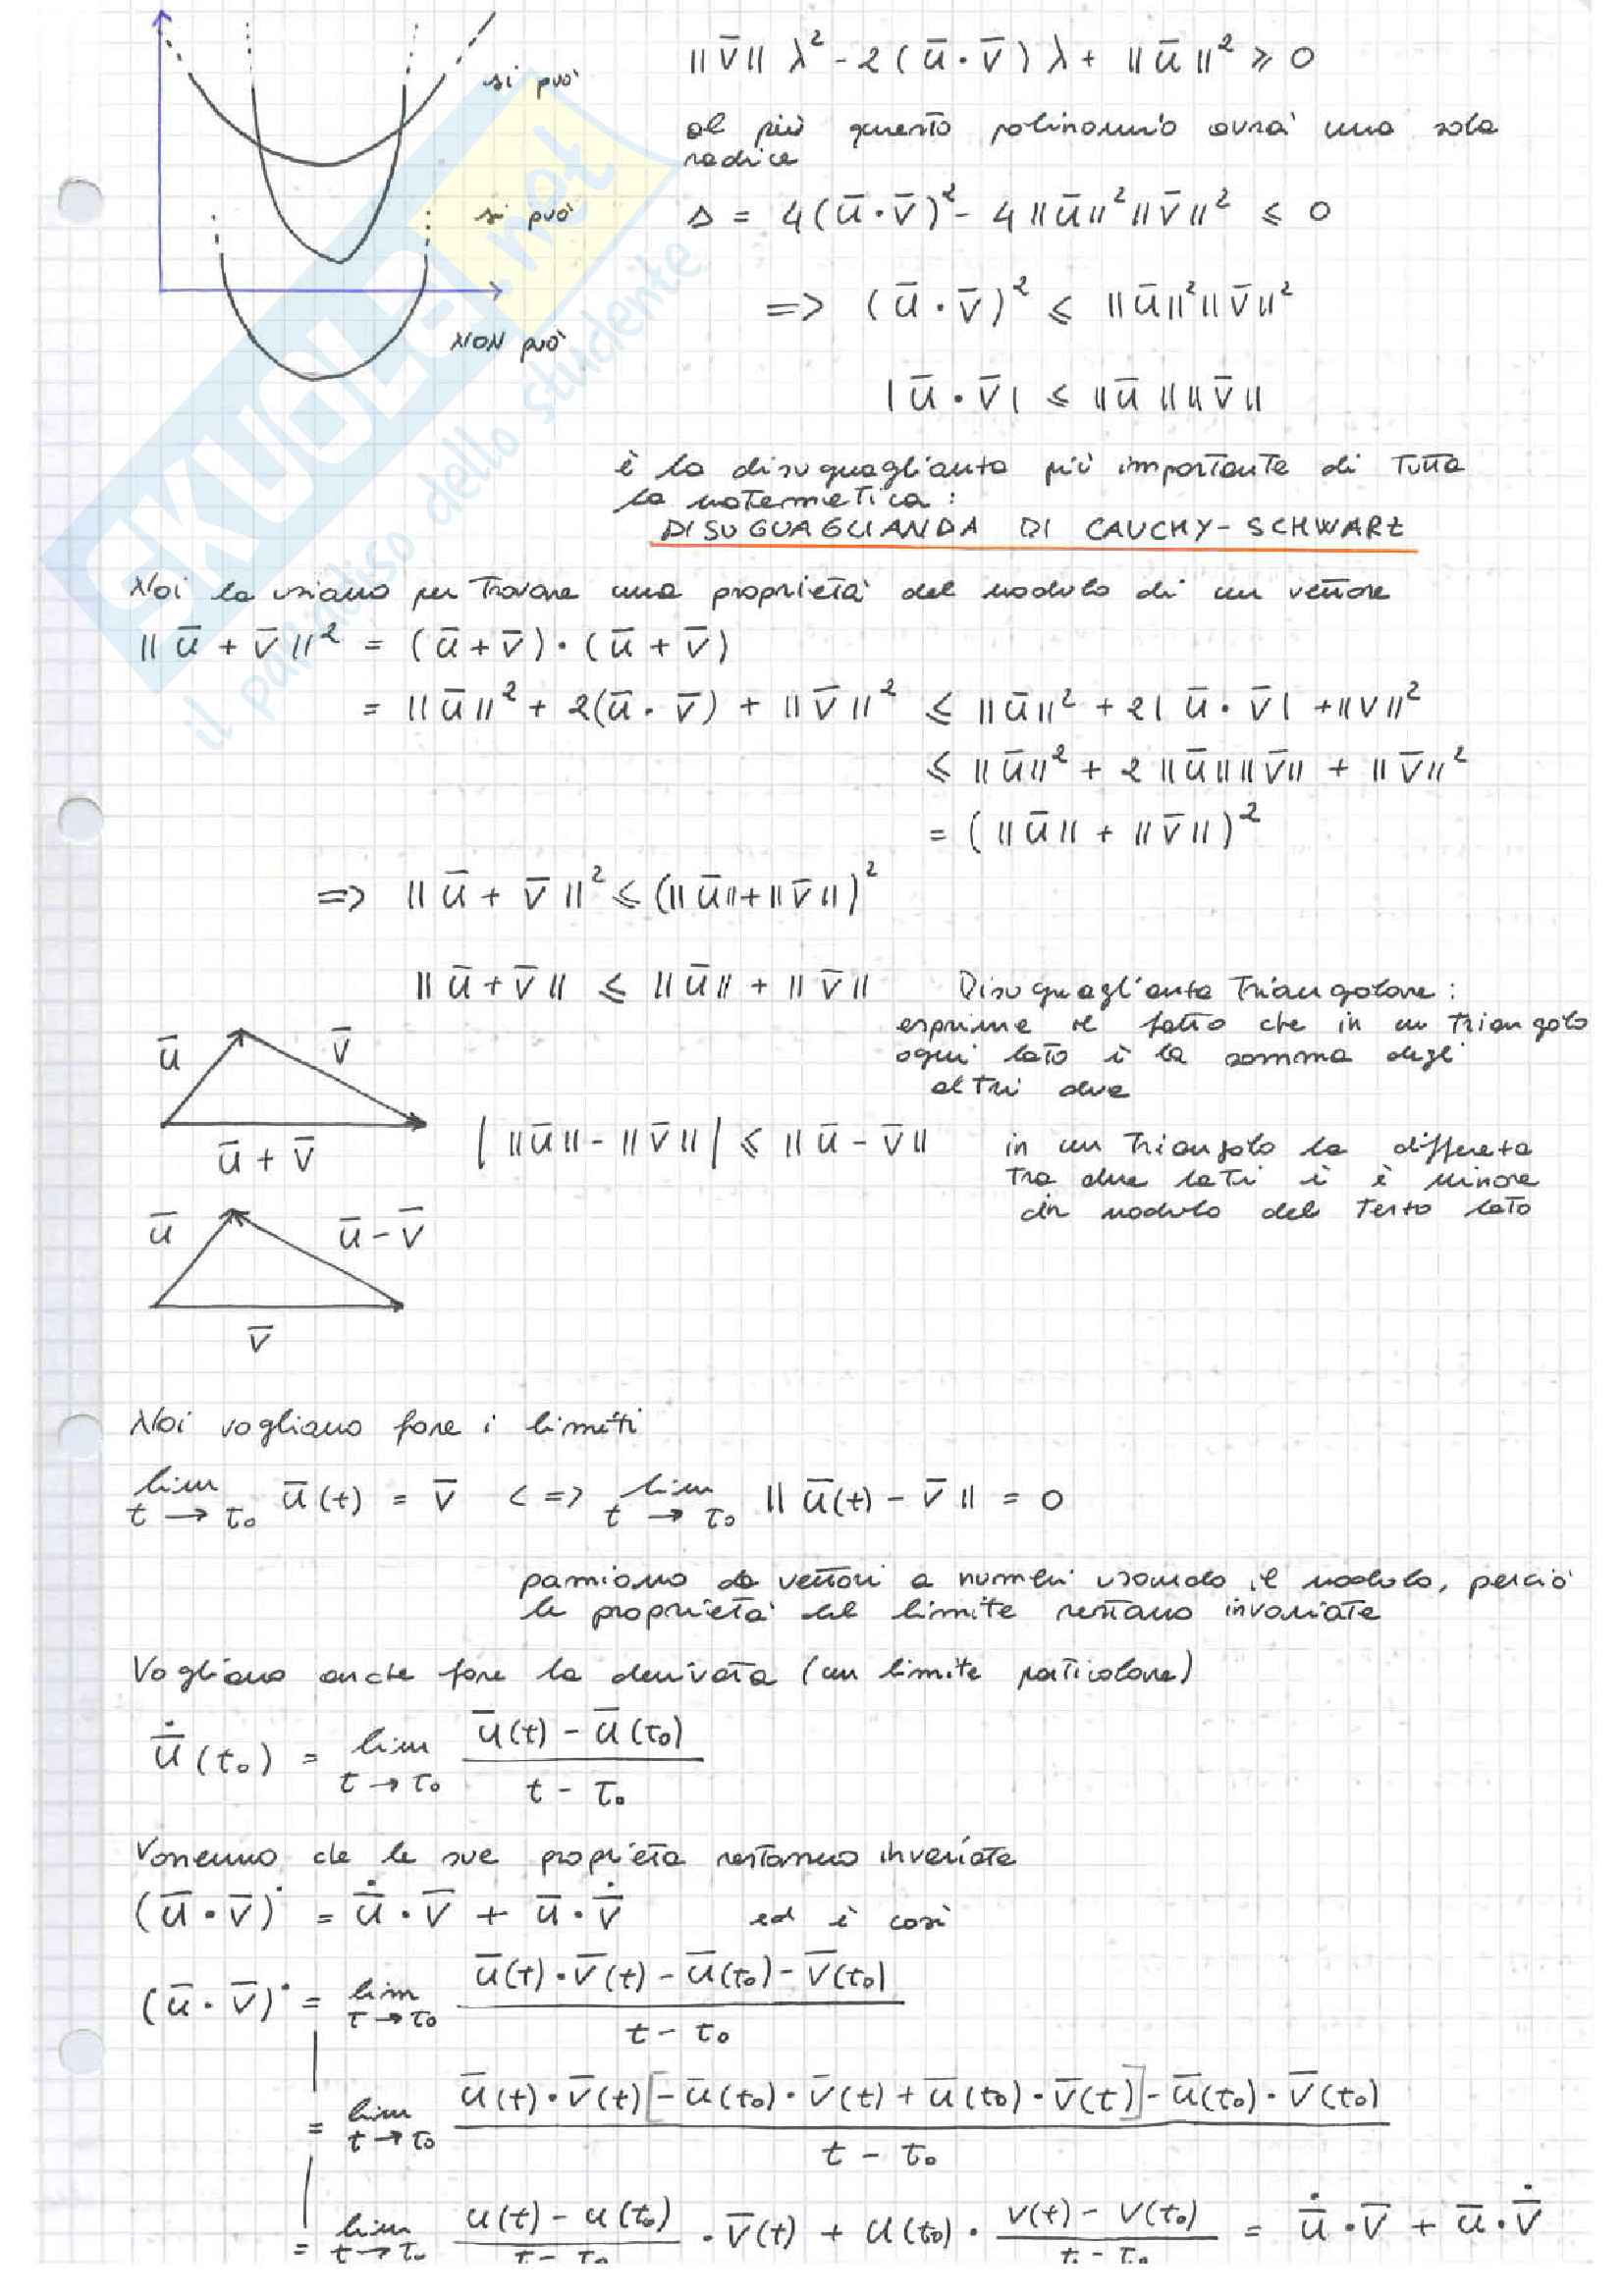 ‖v̄‖ λ² - 2(ū·v̄)λ + ‖ū‖² ⩾ 0
si può
al più questo polinomio avrà una sola
radice
si può
Δ = 4(ū·v̄)² - 4‖ū‖²‖v̄‖² ⩽ 0
=> (ū·v̄)² ⩽ ‖ū‖²‖v̄‖²
NON può
|ū·v̄| ⩽ ‖ū‖‖v̄‖
è la disuguaglianza più importante di tutta
la matematica:
DISUGUAGLIANDA DI CAUCHY-SCHWARZ
Noi la usiamo per trovare una proprietà del modulo di un vettore
‖ū + v̄‖² = (ū+v̄)·(ū+v̄)
= ‖ū‖² + 2(ū·v̄) + ‖v̄‖² ⩽ ‖ū‖² + 2|ū·v̄| + ‖v‖²
⩽ ‖ū‖² + 2‖ū‖‖v̄‖ + ‖v̄‖²
= (‖ū‖ + ‖v̄‖)²
=> ‖ū + v̄‖² ⩽ (‖ū‖+‖v̄‖)²
‖ū+v̄‖ ⩽ ‖ū‖ + ‖v̄‖ Disuguaglianza Triangolare:
esprime il fatto che in un triangolo
ogni lato è la somma degli
altri due
ū v̄
ū + v̄
|‖ū‖-‖v̄‖| ⩽ ‖ū-v̄‖ in un triangolo la differeza
tra due lati è è minore
in modulo del terzo lato
ū ū-v̄
v̄
Noi vogliamo fare i limiti
lim t→t₀ ū(t) = v̄ <=> lim t→t₀ ‖ū(t)-v̄‖ = 0
passiamo da vettori a numeri usando il modulo, perciò
le proprietà del limite restano invariate
Vogliamo anche fare la derivata (un limite particolare)
ū̇(t₀) = lim t→t₀ (ū(t) - ū(t₀)) / (t - t₀)
Vorremmo che le sue proprietà restassero invariate
(ū·v̄)˙ = ū̇·v̄ + ū·v̄̇ ed è così
(ū·v̄)˙ = lim t→t₀ (ū(t)·v̄(t) - ū(t₀) - v̄(t₀)) / (t - t₀)
= lim t→t₀ (ū(t)·v̄(t)[-ū(t₀)·v̄(t) + ū(t₀)·v̄(t)]-ū(t₀)·v̄(t₀)) / (t - t₀)
= lim t→t₀ (u(t) - u(t₀)) / (t - t₀) · v̄(t) + u(t₀) · (v(t) - v(t₀)) / (t - t₀) = ū̇·v̄ + ū·v̄̇
SKUOLA.net
il paradiso dello studente